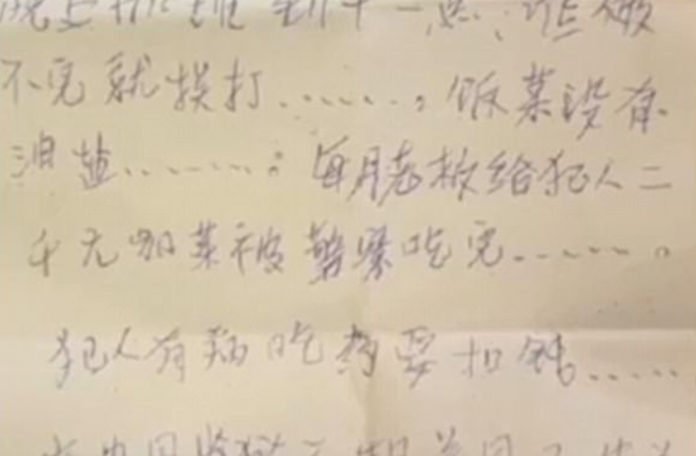 晚上加班到十一点,谁做
不完就挨打.......。饭菜没有
油盐........。每月老板给犯人二
千元加菜被警察吃完.......。
犯人有病吃药要扣钱.....